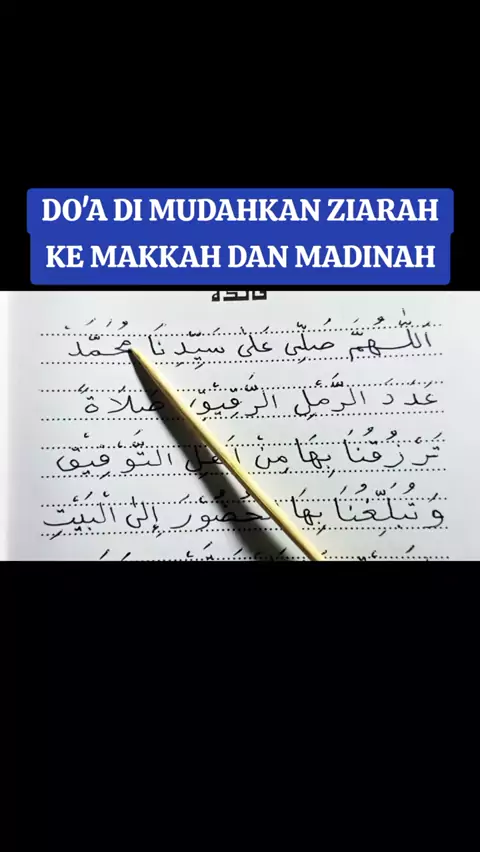 DO'A DI MUDAHKAN ZIARAH
KE MAKKAH DAN MADINAH
اَللّٰهُمَّ صَلِّى عَلٰى سَيِّدِنَا مُحَمَّدْ
عَدَدَ الرَّمْلِ الرَّقِيْقِ، صَلَاةً
تَرْزُقُنَا بِهَا مِنْ اَهْلِ التَّوْفِيْقْ
وَتُبَلِّغُنَا بِهَا حُضُوْرَ إِلىٰ الْبَيْتِ